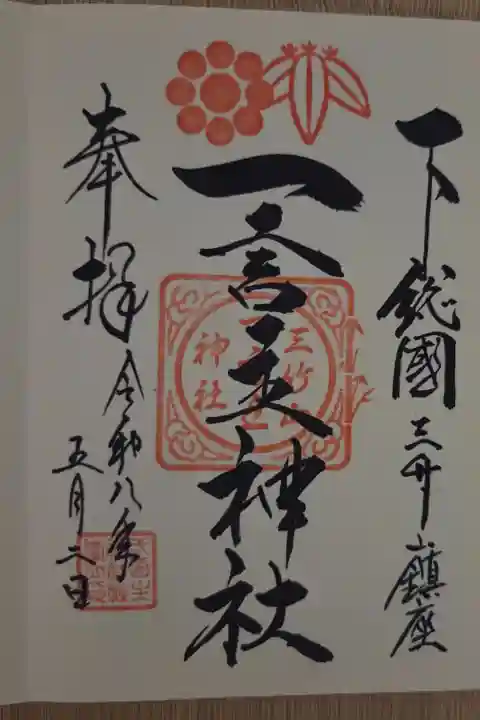 下総國三竹山鎮座
一言主神社
三竹山
一言主
神社
奉拝
令和八年
五月二日